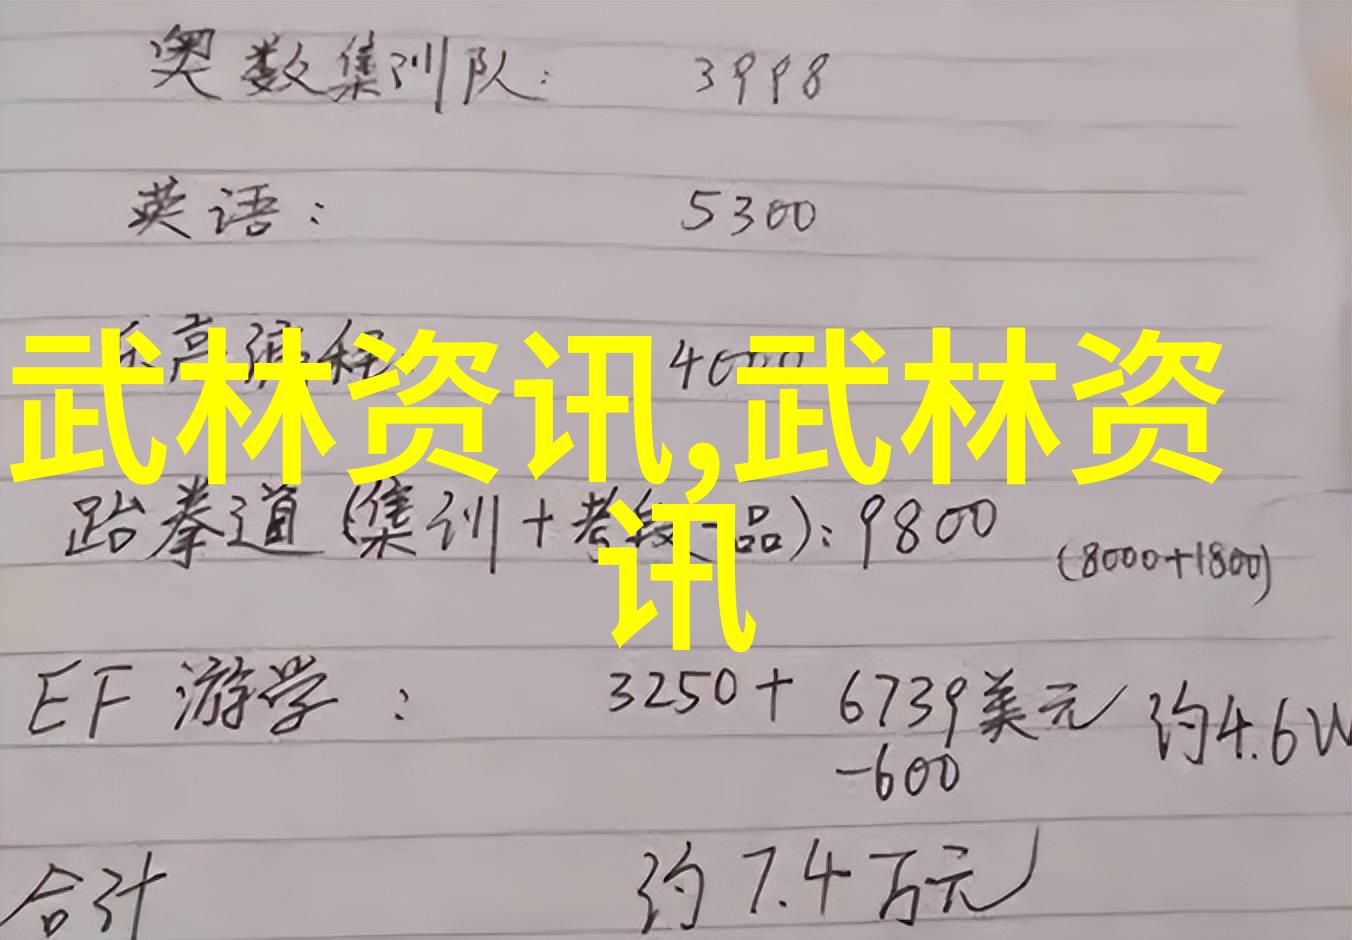 奥数集训队: 3998
英语: 5300
乐高编程: 4000
武林资讯,武林资
讯
跆拳道(集训+考级一品): 9800
(8000+1800)
EF 游学: 3250+6739美元 约4.6W
-600
合计 约7.4万元